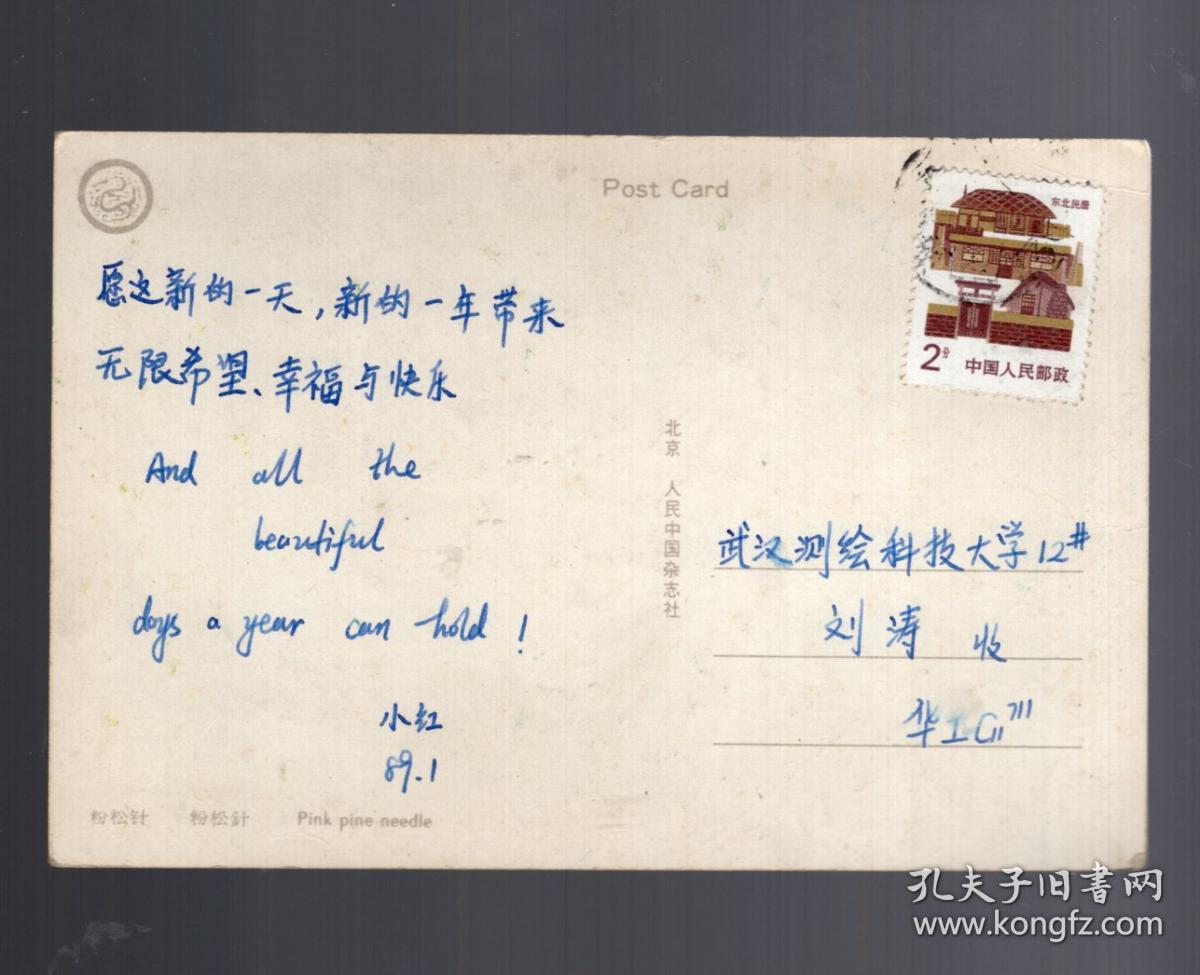 Post Card
东北民居
2分 中国人民邮政
愿这新的一天，新的一年带来
无限希望、幸福与快乐
And all the
beautiful
days a year can hold !
小红
89.1
北京 人民中国杂志社
武汉测绘科技大学12#
刘涛 收
华工
粉松针 粉松針 Pink pine needle
孔夫子旧书网
www.kongfz.com